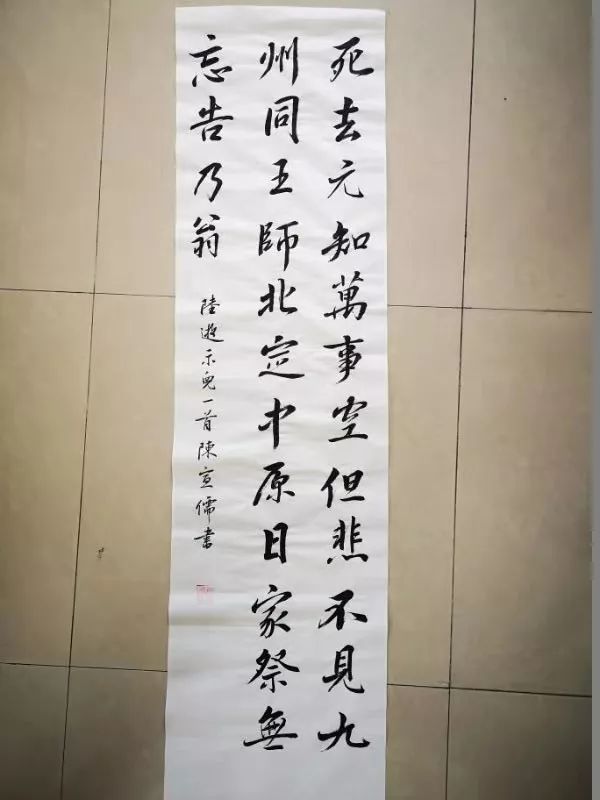 死去元知萬事空但悲不見九
州同王師北定中原日家祭無
忘告乃翁
陸遊示兒一首陳宣儒書